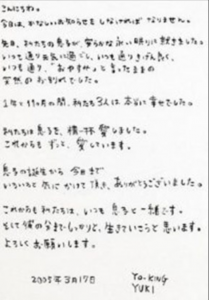 こんにちわ。
今日は、かなしいお知らせをしなければなりません。
先日、私たちの息子が、安らかな永い眠りに就きました。
いつも通り元気に過ごし、いつも通りきげん良く、
いつも通り、「おやすみ」と言ったままの
突然のお別れでした。
1年と11ヶ月の間、私たち3人は、本当に幸せでした。
私たちは息子を、精一杯愛しました。
これからもずっと、愛しています。
息子の誕生から今日まで
いろいろと気にかけて頂き、ありがとうございました。
これからも私たちは、いつも息子と一緒です。
そして彼の分までしっかりと、生きていこうと思います。
よろしくお願いします。
2005年3月17日
YO-KING
YUKI